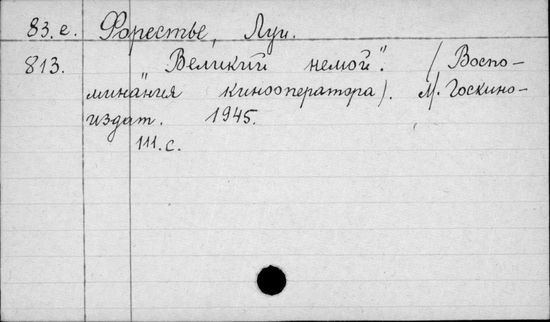 83.е. Форестье, Луи.
813. "Великий немой". (Воспо-
минания кинооператора). М. Госкино-
издат. 1945.
111.с.